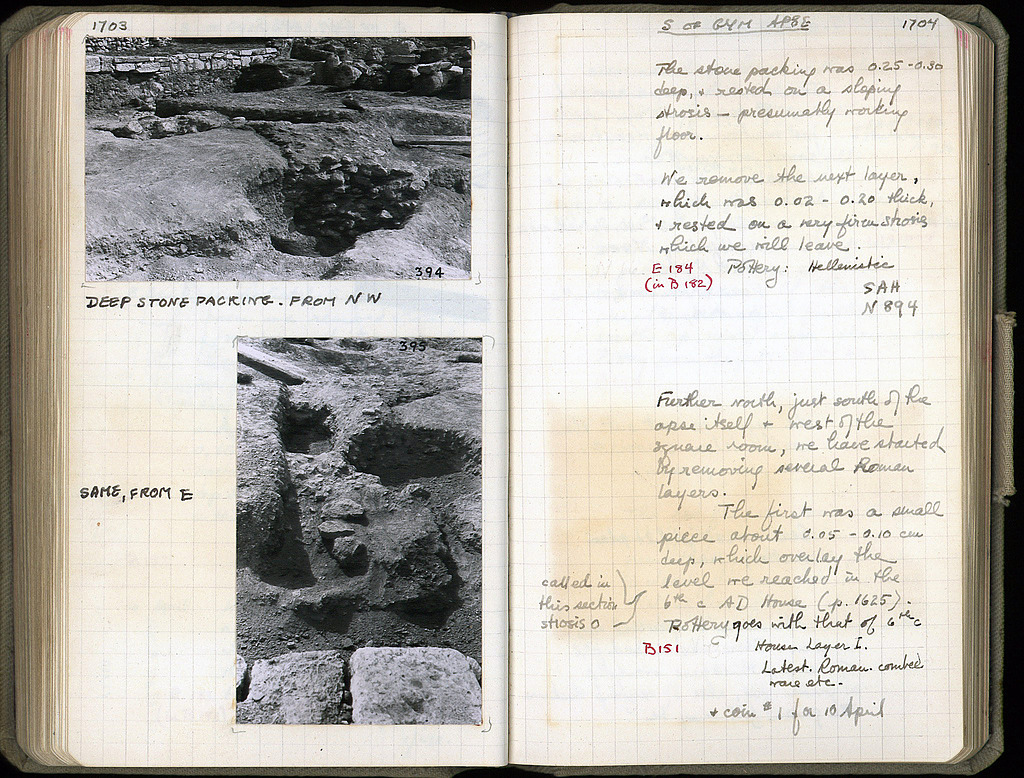 1703
394
DEEP STONE PACKING. FROM NW
395
SAME, FROM E
S OF GYM APSE
1704
The stone packing was 0.25-0.30
deep, + rested on a sloping
strosis – presumably working
floor.
We remove the next layer,
which was 0.02 - 0.20 thick,
+ rested on a very firm strosis
which we will leave.
E 184
(in B 182)
Pottery: Hellenistic
SAH
N 894
Further north, just south of the
apse itself + west of the
square room, we have started
by removing several Roman
layers.
The first was a small
piece about 0.05 - 0.10 cm
deep, which overlay the
level we reached in the
6th c AD House (p. 1625).
called in
this section
strosis O
Pottery goes with that of 6th c
B151
House Layer I.
Latest. Roman. combed
ware etc.
+ coin # 1 for 10 April